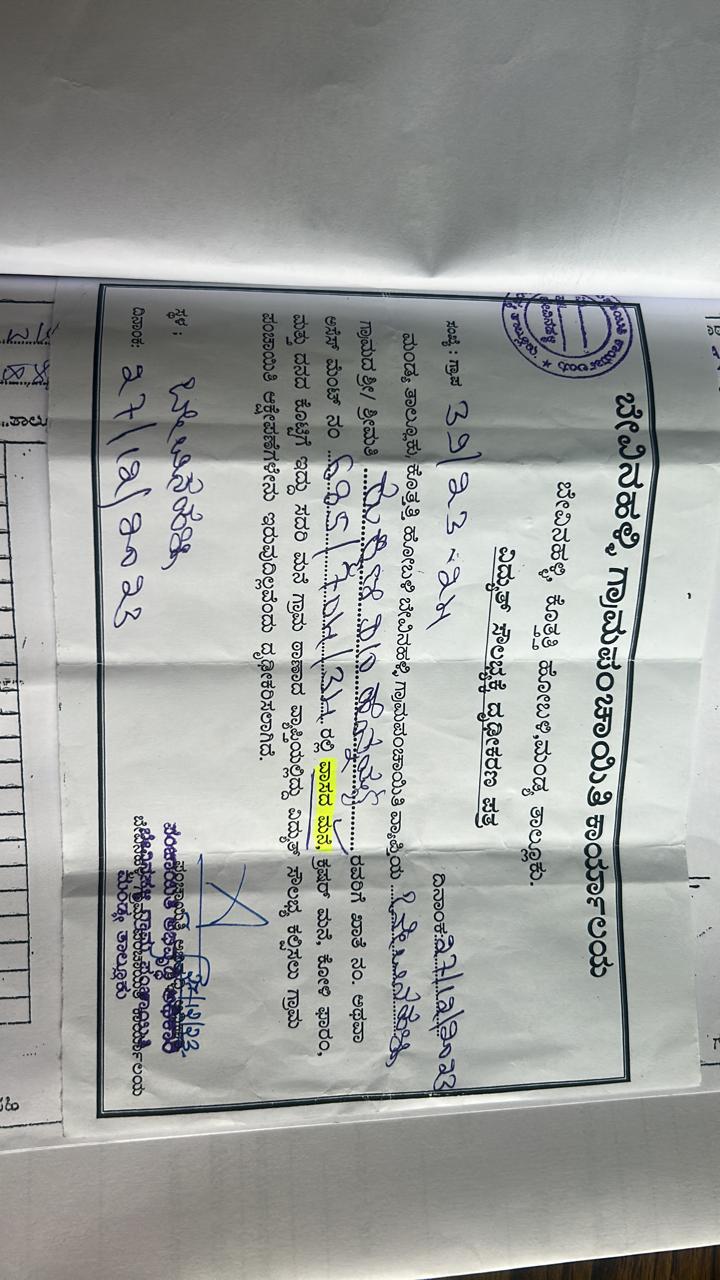 ಬೇವಿನಹಳ್ಳಿ ಗ್ರಾಮಪಂಚಾಯಿತಿ ಕಾರ್ಯಾಲಯ
ಬೇವಿನಹಳ್ಳಿ, ಕೊತ್ತತ್ತಿ ಹೋಬಳಿ, ಮಂಡ್ಯ ತಾಲ್ಲೂಕು.
ವಿದ್ಯುತ್ ಸೌಲಭ್ಯಕ್ಕೆ ದೃಢೀಕರಣ ಪತ್ರ
ಸಂಖ್ಯೆ : ಗ್ರಾಪ 39/23-24 ದಿನಾಂಕ: 27/12/2023
ಮಂಡ್ಯ ತಾಲ್ಲೂಕು, ಕೊತ್ತತ್ತಿ ಹೋಬಳಿ ಬೇವಿನಹಳ್ಳಿ ಗ್ರಾಮಪಂಚಾಯಿತಿ ವ್ಯಾಪ್ತಿಯ ಬೇವಿನಹಳ್ಳಿ
ಗ್ರಾಮದ ಶ್ರೀ/ ಶ್ರೀಮತಿ ರವರಿಗೆ ಖಾತೆ ನಂ. ಅಥವಾ
ಅಸೆಸ್ ಮೆಂಟ್ ನಂ ರಲ್ಲಿ ವಾಸದ ಮನೆ, ಕ್ರಷರ್ ಮನೆ, ಕೋಳಿ ಫಾರಂ,
ಮತ್ತು ದನದ ಕೊಟ್ಟಿಗೆ ಇದ್ದು ಸದರಿ ಮನೆ ಗ್ರಾಮ ಠಾಣಾದ ವ್ಯಾಪ್ತಿಯಲ್ಲಿದ್ದು ವಿದ್ಯುತ್ ಸೌಲಭ್ಯ ಕಲ್ಪಿಸಲು ಗ್ರಾಮ
ಪಂಚಾಯಿತಿ ಆಕ್ಷೇಪಣೆಗಳೇನು ಇರುವುದಿಲ್ಲವೆಂದು ದೃಢೀಕರಿಸಲಾಗಿದೆ.
ಸ್ಥಳ : ಬೇವಿನಹಳ್ಳಿ
ದಿನಾಂಕ: 27/12/2023
27/12/23
ಪಂಚಾಯಿತಿ ಅಭಿವೃದ್ಧಿ ಅಧಿಕಾರಿ
ಬೇವಿನಹಳ್ಳಿ ಗ್ರಾಮ ಪಂಚಾಯಿತಿ
ಮಂಡ್ಯ ತಾಲ್ಲೂಕು